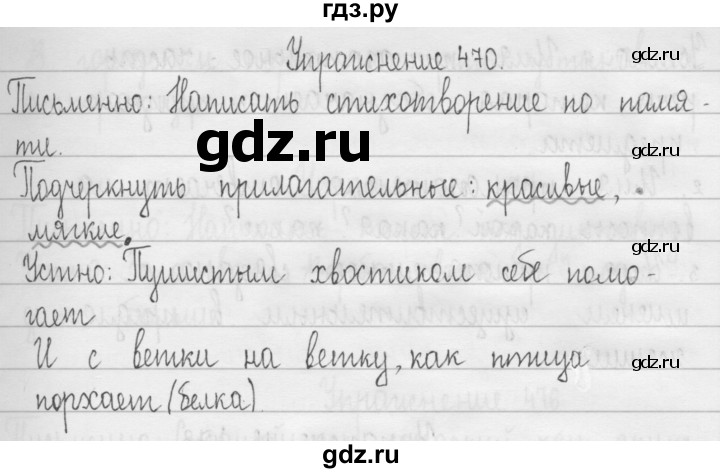 гдз.ру
Упражнение 470.
gdz.ru
Письменно: Написать стихотворение по памя-
ти.
gdz.ru
gdz.ru
Подчеркнуть прилагательные: красивые,
мягкие.
gdz.ru
Устно: Пушистым хвостиком себе помо-
гает
И с ветки на ветку, как птица
gdz.ru
порхает (белка).
gdz.ru
gdz.ru